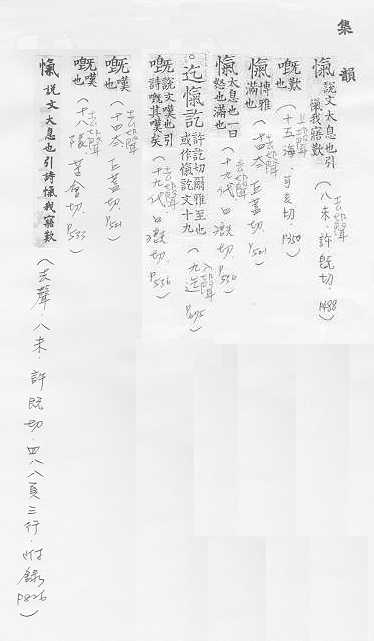 集韻
愾 說文大息也引詩愾我寤歎 去聲(八未.許既切.P488)
嘅 歎也 上聲(十五海.可亥切.P350)
愾 博雅滿也 去聲(十四夳.丘蓋切.P521)
愾 太息也一曰怒也滿也 去聲(十九代.口溉切.P536)
○迄愾訖 許訖切爾雅至也或作愾訖文十九 入聲(九迄.P675)
嘅 說文嘆也引詩嘅其嘆矣 去聲(十九代.口溉切.P536)
嘅 嘆也 去聲(十四夳.丘蓋切.P521)
嘅 嘆也 去聲(十八隊.苦會切.P533)
愾 說文大息也引詩愾我寤歎(去聲.八未.許既切.四八八頁三行.附錄P826)